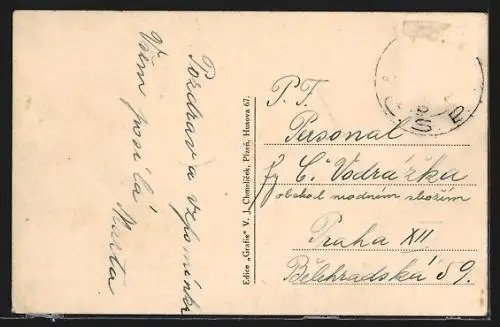 Pozdrav a vzpomínku
Všem posílá
Marta.
Edice „Grafie" V. J. Chmelíček, Plzeň, Husova 67.
P. T.
Personal
fy Č. Vodrážka
obchod modním zbožím
Praha XII
Bělehradská 59.